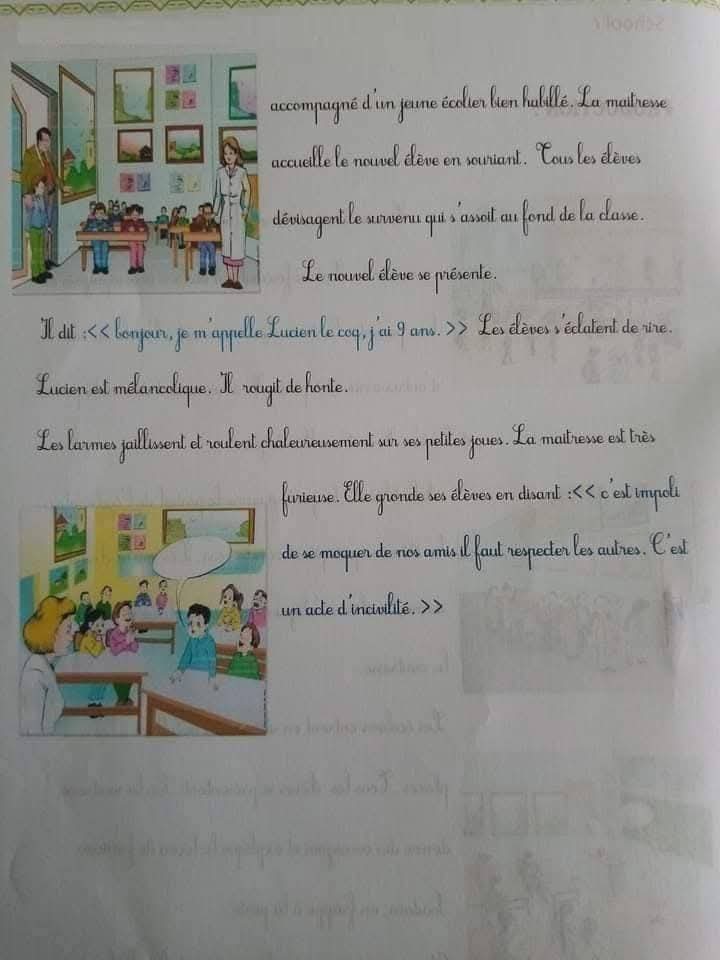 accompagné d'un jeune écolier bien habillé. La maitresse
accueille le nouvel élève en souriant. Tous les élèves
dévisagent le survenu qui s'assoit au fond de la classe.
Le nouvel élève se présente.
Il dit :<< bonjour, je m'appelle Lucien le coq, j'ai 9 ans. >> Les élèves s'éclatent de rire.
Lucien est mélancolique. Il rougit de honte.
Les larmes jaillissent et roulent chaleureusement sur ses petites joues. La maitresse est très
furieuse. Elle gronde ses élèves en disant :<< c'est impoli
de se moquer de nos amis il faut respecter les autres. C'est
un acte d'incivilité. >>